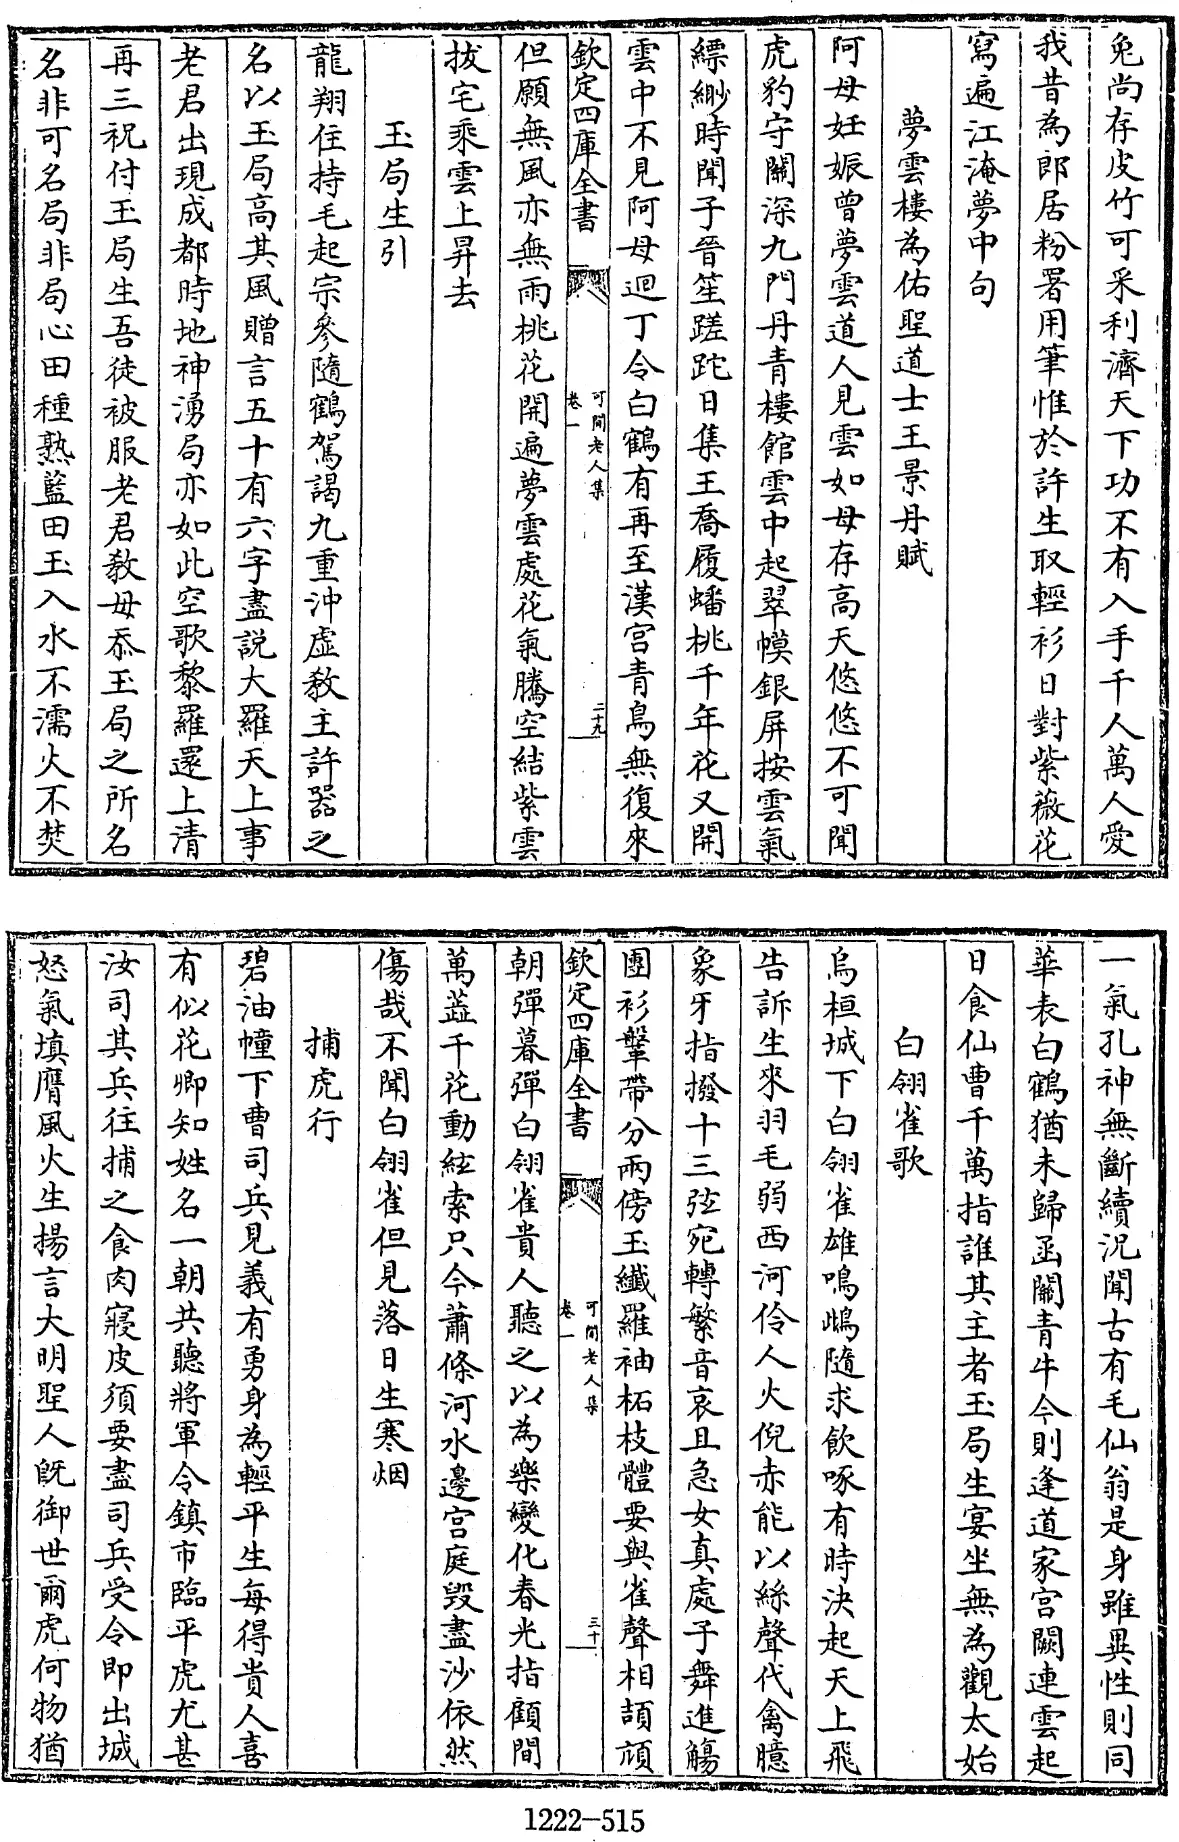 兔尚存皮竹可采利濟天下功不有入手千人萬人愛
我昔為郎居粉署用筆惟於許生取輕衫日對紫薇花
寫遍江淹夢中句
夢雲樓為佑聖道士王景丹賦
阿母妊娠曾夢雲道人見雲如母存高天悠悠不可聞
虎豹守關深九門丹青樓館雲中起翠幙銀屏按雲氣
縹緲時聞子晉笙蹉跎日集王喬履蟠桃千年花又開
雲中不見阿母迴丁令白鶴有再至漢宫青鳥無復來
欽定四庫全書
可閒老人集
卷一
二十九
但願無風亦無雨桃花開遍夢雲處花氣騰空結紫雲
拔宅乘雲上昇去
玉局生引
龍翔住持毛起宗參隨鶴駕謁九重沖虛教主許器之
名以玉局高其風贈言五十有六字盡說大羅天上事
老君出現成都時地神湧局亦如此空歌黎羅還上清
再三祝付玉局生吾徒被服老君教毋忝玉局之所名
名非可名局非局心田種熟藍田玉入水不濡火不焚
一氣孔神無斷續況聞古有毛仙翁是身雖異性則同
華表白鶴猶未歸函關青牛今則逢道家宫闕連雲起
日食仙曹千萬指誰其主者玉局生宴坐無為觀太始
白翎雀歌
烏桓城下白翎雀雄鳴雌隨求飲啄有時決起天上飛
告訴生來羽毛弱西河伶人火倪赤能以絲聲代禽臆
象牙指撥十三弦宛轉繁音哀且急女真處子舞進觴
團衫鞶帶分兩傍玉纖羅袖柘枝體要與雀聲相頡頏
欽定四庫全書
可閒老人集
卷一
三十
朝彈暮彈白翎雀貴人聽之以為樂變化春光指顧間
萬蕋千花動絃索只今蕭條河水邊宫庭毀盡沙依然
傷哉不聞白翎雀但見落日生寒烟
捕虎行
碧油幢下曹司兵見義有勇身為輕平生每得貴人喜
有似花卿知姓名一朝共聽將軍令鎮市臨平虎尤甚
汝司其兵往捕之食肉寢皮須要盡司兵受令即出城
怒氣填膺風火生揚言大明聖人旣御世爾虎何物猶
1222-515